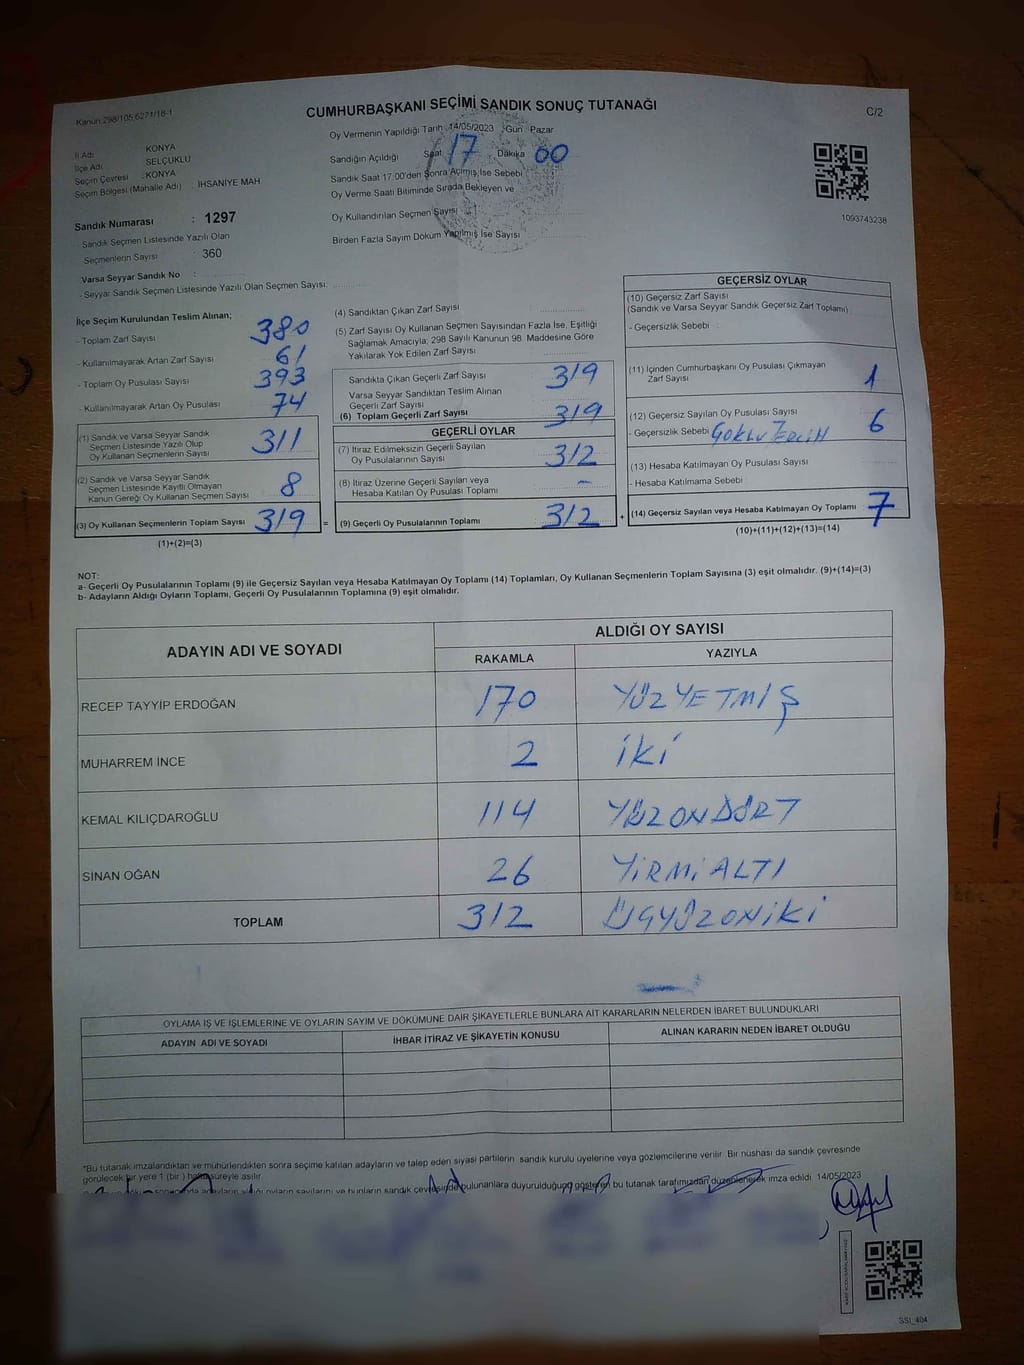 Kanun:298/105,6271/18-1
CUMHURBAŞKANI SEÇİMİ SANDIK SONUÇ TUTANAĞI
C/2
İl Adı : KONYA
İlçe Adı : SELÇUKLU
Seçim Çevresi : KONYA
Seçim Bölgesi (Mahalle Adı) : İHSANİYE MAH
Sandık Numarası : 1297
- Sandık Seçmen Listesinde Yazılı Olan
Seçmenlerin Sayısı : 360
Varsa Seyyar Sandık No :
- Seyyar Sandık Seçmen Listesinde Yazılı Olan Seçmen Sayısı:
Oy Vermenin Yapıldığı Tarih :14/05/2023 Gün : Pazar
Sandığın Açıldığı Saat 17 Dakika 00
Sandık Saat 17.00'den Sonra Açılmış İse Sebebi
Oy Verme Saati Bitiminde Sırada Bekleyen ve
Oy Kullandırılan Seçmen Sayısı
Birden Fazla Sayım Döküm Yapılmış İse Sayısı
1093743238
İlçe Seçim Kurulundan Teslim Alınan;
- Toplam Zarf Sayısı 380
- Kullanılmayarak Artan Zarf Sayısı 61
- Toplam Oy Pusulası Sayısı 393
- Kullanılmayarak Artan Oy Pusulası 74
(1) Sandık ve Varsa Seyyar Sandık
Seçmen Listesinde Yazılı Olup
Oy Kullanan Seçmenlerin Sayısı 311
(2) Sandık ve Varsa Seyyar Sandık
Seçmen Listesinde Kayıtlı Olmayan
Kanun Gereği Oy Kullanan Seçmen Sayısı 8
(3) Oy Kullanan Seçmenlerin Toplam Sayısı 319 =
(1)+(2)=(3)
(4) Sandıktan Çıkan Zarf Sayısı
(5) Zarf Sayısı Oy Kullanan Seçmen Sayısından Fazla İse, Eşitliği
Sağlamak Amacıyla; 298 Sayılı Kanunun 98. Maddesine Göre
Yakılarak Yok Edilen Zarf Sayısı
Sandıkta Çıkan Geçerli Zarf Sayısı 319
Varsa Seyyar Sandıktan Teslim Alınan
Geçerli Zarf Sayısı
(6) Toplam Geçerli Zarf Sayısı 319
GEÇERLİ OYLAR
(7) İtiraz Edilmeksizin Geçerli Sayılan
Oy Pusulalarının Sayısı 312
(8) İtiraz Üzerine Geçerli Sayılan veya
Hesaba Katılan Oy Pusulası Toplamı -
(9) Geçerli Oy Pusulalarının Toplamı 312 +
GEÇERSİZ OYLAR
(10) Geçersiz Zarf Sayısı
(Sandık ve Varsa Seyyar Sandık Geçersiz Zarf Toplamı)
- Geçersizlik Sebebi :
(11) İçinden Cumhurbaşkanı Oy Pusulası Çıkmayan
Zarf Sayısı 1
(12) Geçersiz Sayılan Oy Pusulası Sayısı 6
- Geçersizlik Sebebi
(13) Hesaba Katılmayan Oy Pusulası Sayısı
- Hesaba Katılmama Sebebi :
(14) Geçersiz Sayılan veya Hesaba Katılmayan Oy Toplamı 7
(10)+(11)+(12)+(13)=(14)
NOT:
a- Geçerli Oy Pusulalarının Toplamı (9) ile Geçersiz Sayılan veya Hesaba Katılmayan Oy Toplamı (14) Toplamları, Oy Kullanan Seçmenlerin Toplam Sayısına (3) eşit olmalıdır. (9)+(14)=(3)
b- Adayların Aldığı Oyların Toplamı, Geçerli Oy Pusulalarının Toplamına (9) eşit olmalıdır.
ADAYIN ADI VE SOYADI
ALDIĞI OY SAYISI
RAKAMLA YAZIYLA
RECEP TAYYİP ERDOĞAN 170 YÜZYETMİŞ
MUHARREM İNCE 2 İKİ
KEMAL KILIÇDAROĞLU 114 YÜZONDÖRT
SİNAN OĞAN 26 YİRMİALTI
TOPLAM 312 ÜÇYÜZONİKİ
OYLAMA İŞ VE İŞLEMLERİNE VE OYLARIN SAYIM VE DÖKÜMÜNE DAİR ŞİKAYETLERLE BUNLARA AİT KARARLARIN NELERDEN İBARET BULUNDUKLARI
ADAYIN ADI VE SOYADI İHBAR İTİRAZ VE ŞİKAYETİN KONUSU ALINAN KARARIN NEDEN İBARET OLDUĞU
*Bu tutanak imzalandıktan ve mühürlendikten sonra seçime katılan adayların ve talep eden siyasi partilerin sandık kurulu üyelerine veya gözlemcilerine verilir. Bir nüshası da sandık çevresinde
görülecek bir yere 1 (bir) hafta süreyle asılır.
sonunda adayların aldığı oyların sayılarını ve bunların sandık çevresinde bulunanlara duyurulduğunu gösteren bu tutanak tarafımızdan düzenlenerek imza edildi. 14/05/2023
SSİ_404